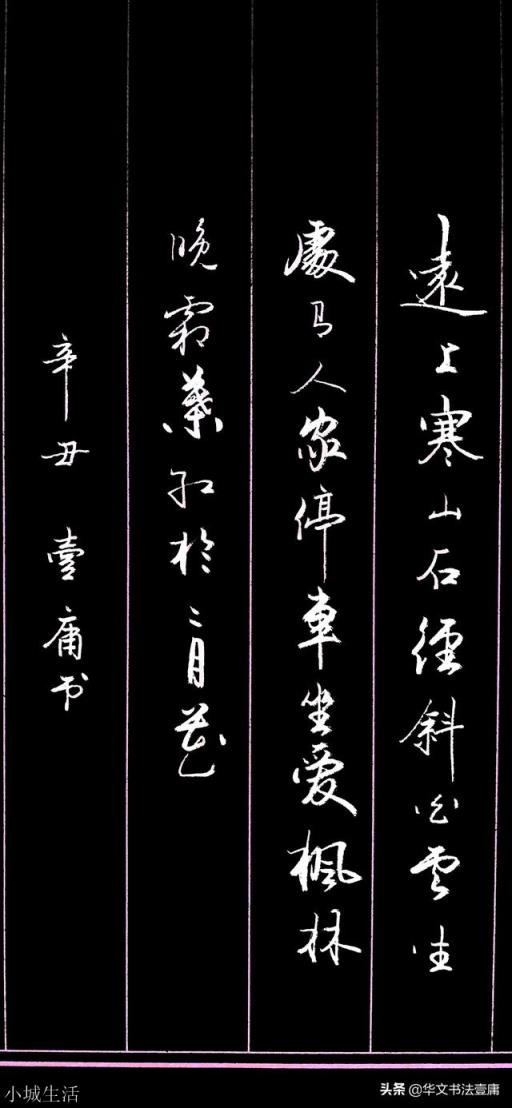 遠上寒山石徑斜白雲生
處有人家停車坐爱楓林
晚霜葉紅於二月花
辛丑 壹庸书
小城生活
头条 @华文书法壹庸